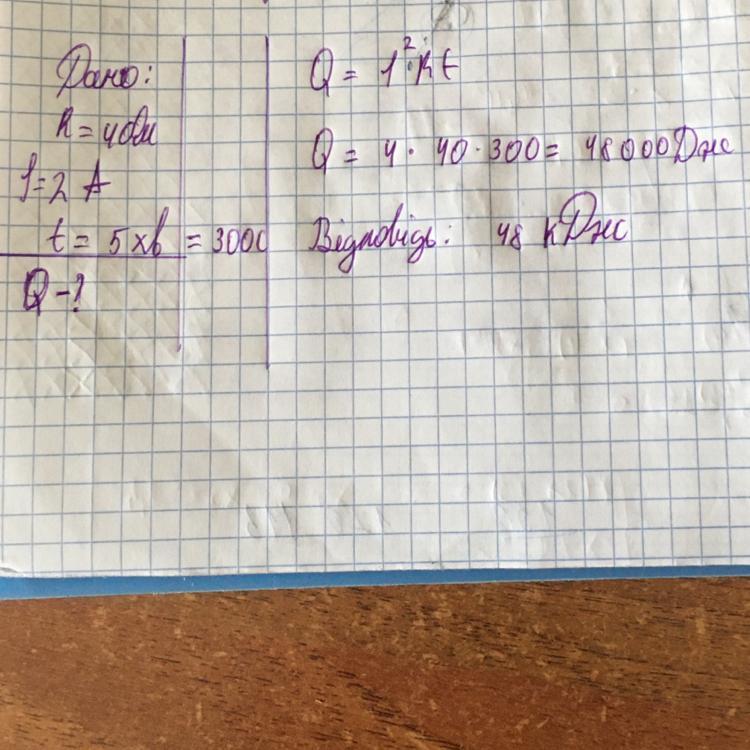 Дано:
R = 40м
I = 2 А
t = 5 хв = 300с
Q - ?
Q = I²Rt
Q = 4 · 40 · 300 = 48000 Дж
Відповідь: 48 кДж